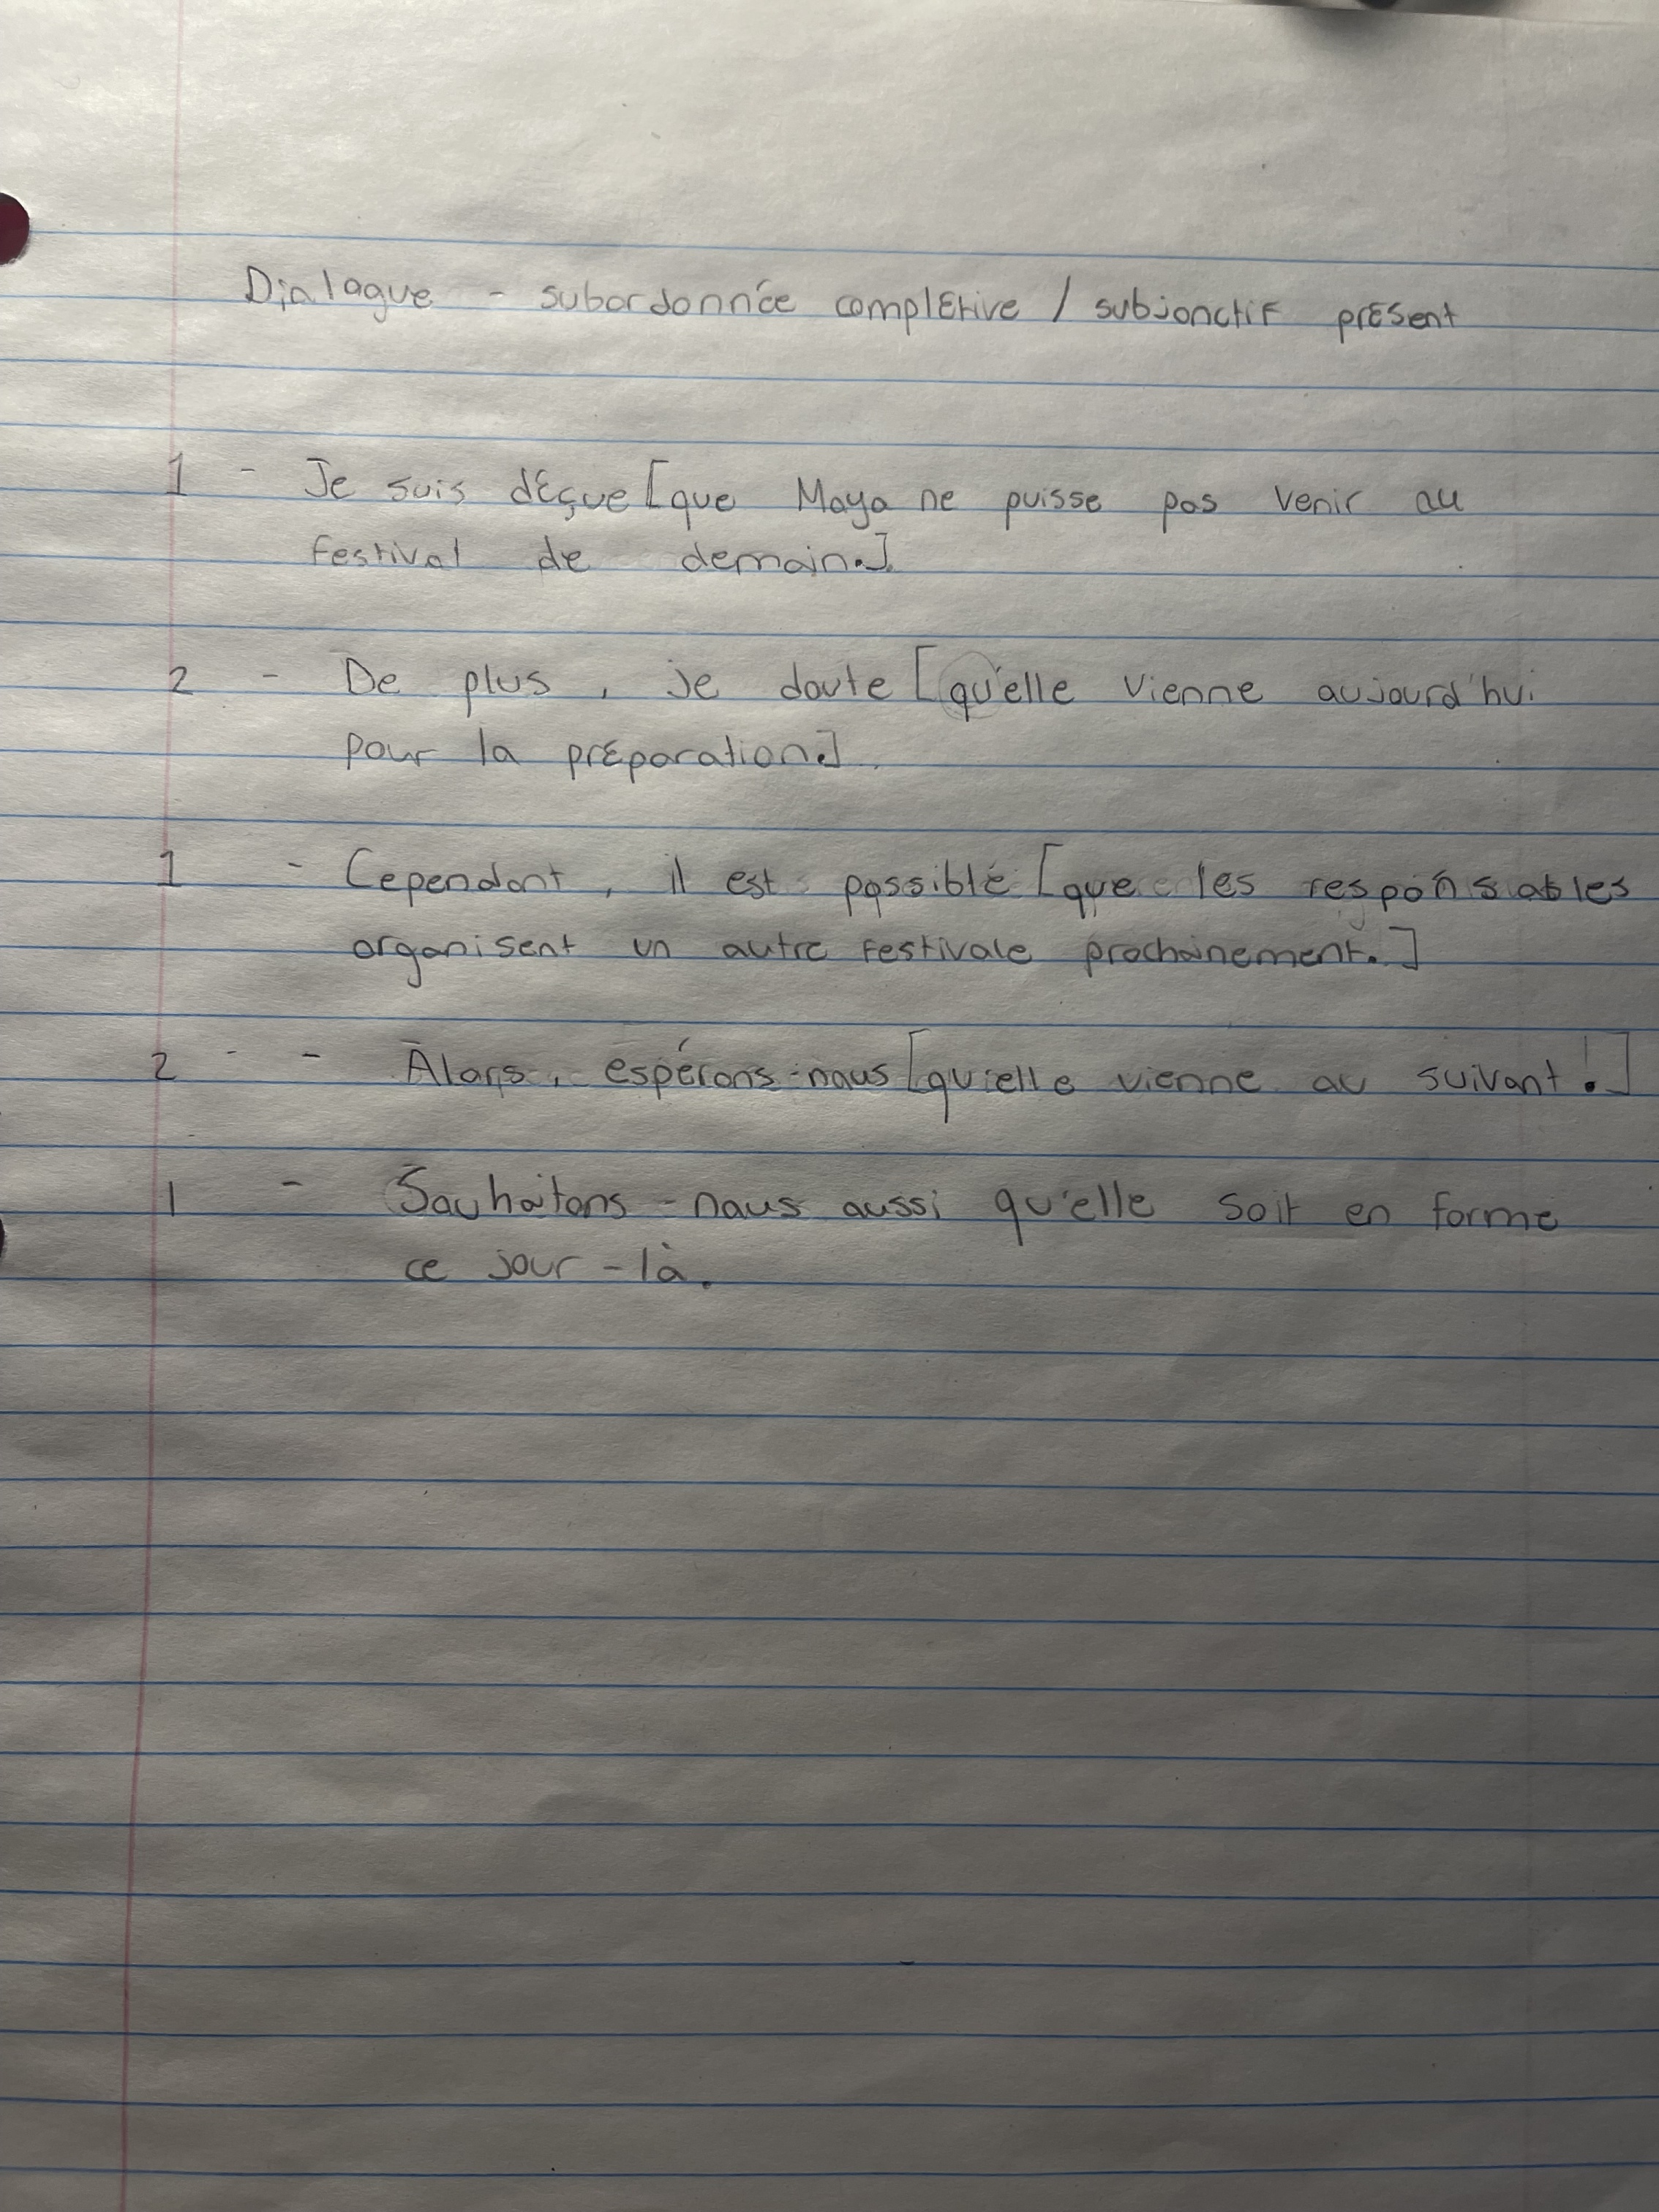 Dialogue - subordonnée complétive / subjonctif présent
1 - Je suis déçue [que Maya ne puisse pas venir au
festival de demain.]
2 - De plus, je doute [qu'elle vienne aujourd'hui
pour la préparation.]
1 - Cependant, il est possible [que les responsables
organisent un autre festivale prochainement.]
2 - Alors, espérons-nous [qu'elle vienne au suivant!]
1 - Souhaitons-nous aussi qu'elle soit en forme
ce jour-là.